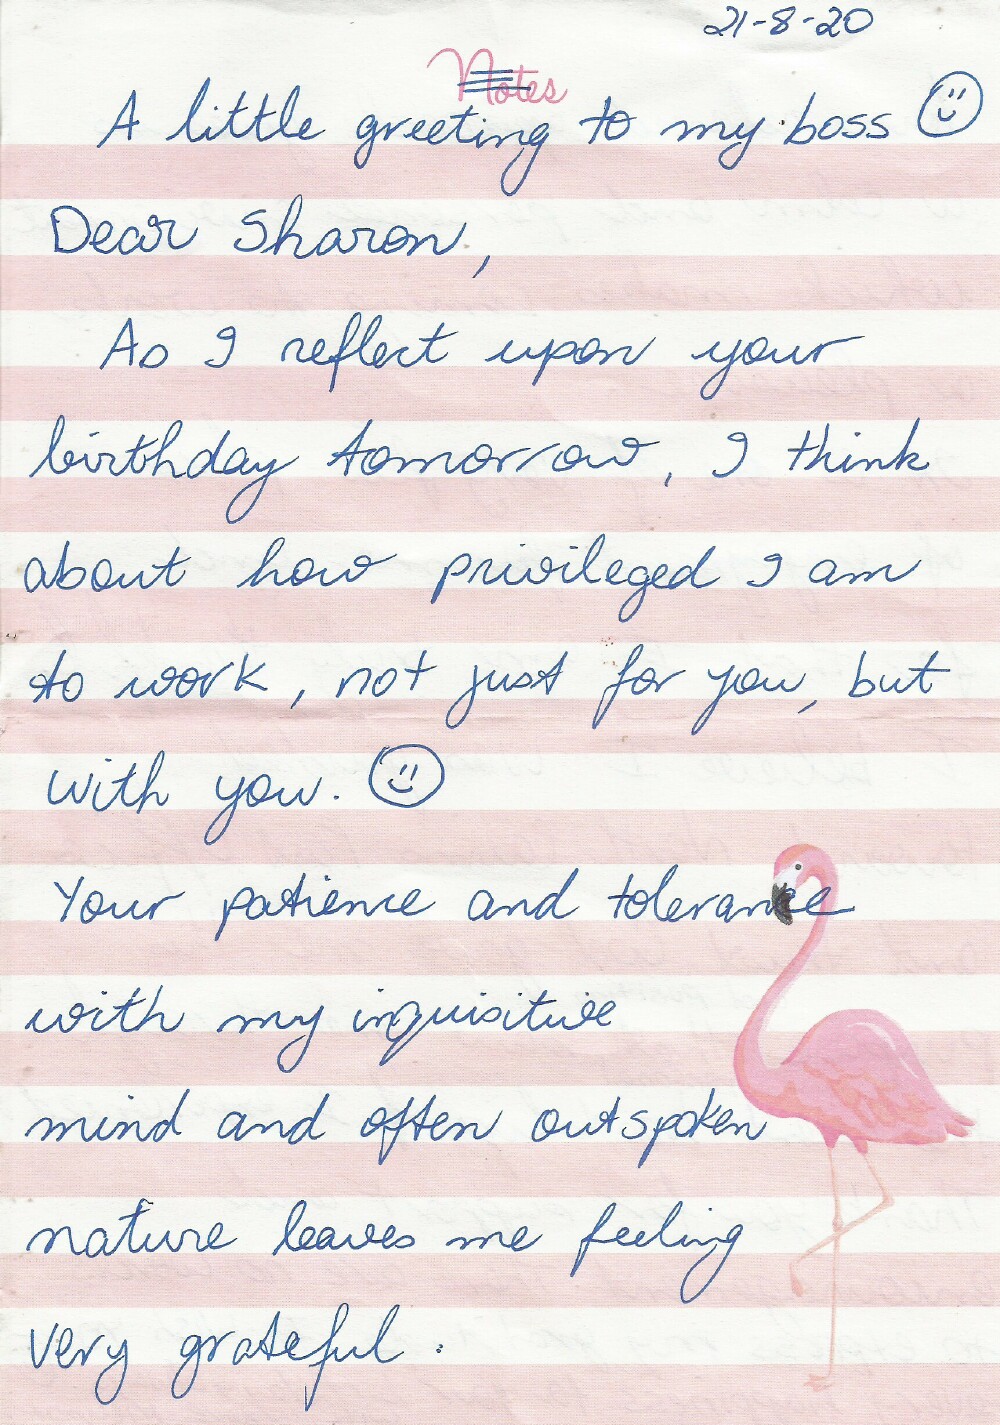 21-8-20
Notes
A little greeting to my boss
Dear Sharon,
As I reflect upon your
birthday tomorrow, I think
about how privileged I am
to work, not just for you, but
with you.
Your patience and tolerance
with my inquisitive
mind and often outspoken
nature leaves me feeling
very grateful.